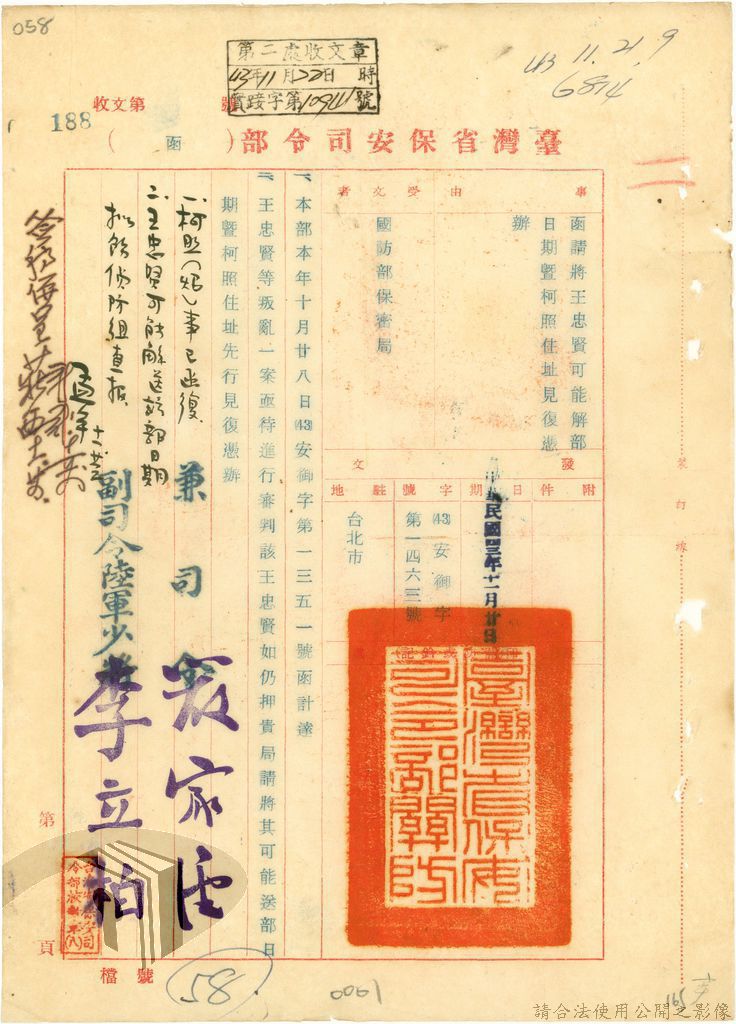 058
第二處收文章
43年11月22日 時
實踐字第10941號
43 11. 21. 9
6814
收文第 號
188
臺灣省保安司令部(函)
事由
函請將王忠賢可能解部
日期暨柯照住址見復憑
辦
受文者
國防部保密局
發文
附件
日期
中華民國四三年十一月廿日
字號
(43)安御字
第一四六三號
駐地
台北市
臺灣省保安司令部關防
一、本部本年十月廿八日(43)安御字第一三五一號函計達
二、王忠賢等叛亂一案亟待進行審判該王忠賢如仍押貴局請將其可能送部日
期暨柯照住址先行見復憑辦
一、柯照(炤)事已函復
二、王忠賢可能解送該部日期
擬飭偵防組查報
兼司令
嚴家淦
副司令陸軍少將
李立柏
第 頁
檔號
58
0061
165
裝訂線
請合法使用公開之影像